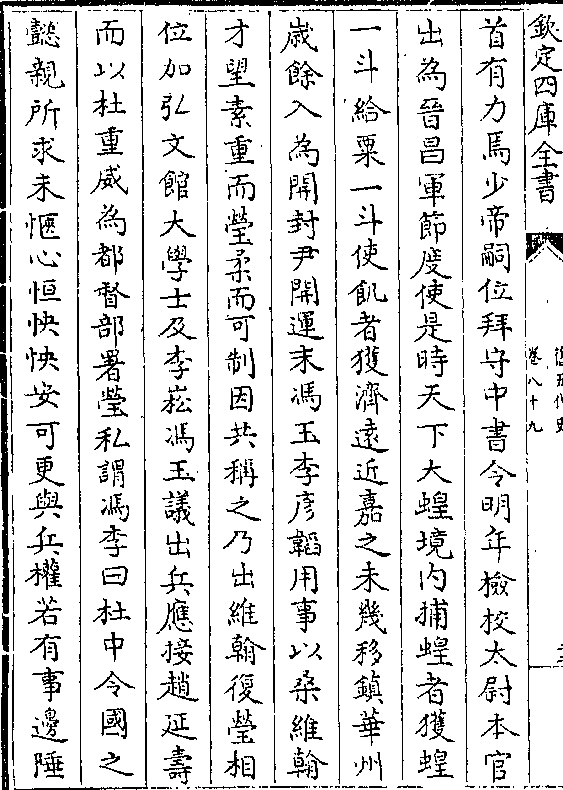 欽定四庫全書
卷八十九
首有力焉少帝嗣位拜守中書令明年檢校太尉本官
出為晉昌軍節度使是時天下大蝗境内捕蝗者獲蝗
一斗給粟一斗使飢者獲濟遠近嘉之未幾移鎮華州
歲餘入為開封尹開運末馮玉李彦韜用事以桑維翰
才望素重而瑩柔而可制因共稱之乃出維翰復瑩相
位加弘文館大學士及李崧馮玉議出兵應接趙延壽
而以杜重威為都督部署瑩私謂馮李曰杜中令國之
懿親所求未愜心恒怏怏安可更與兵權若有事邊陲